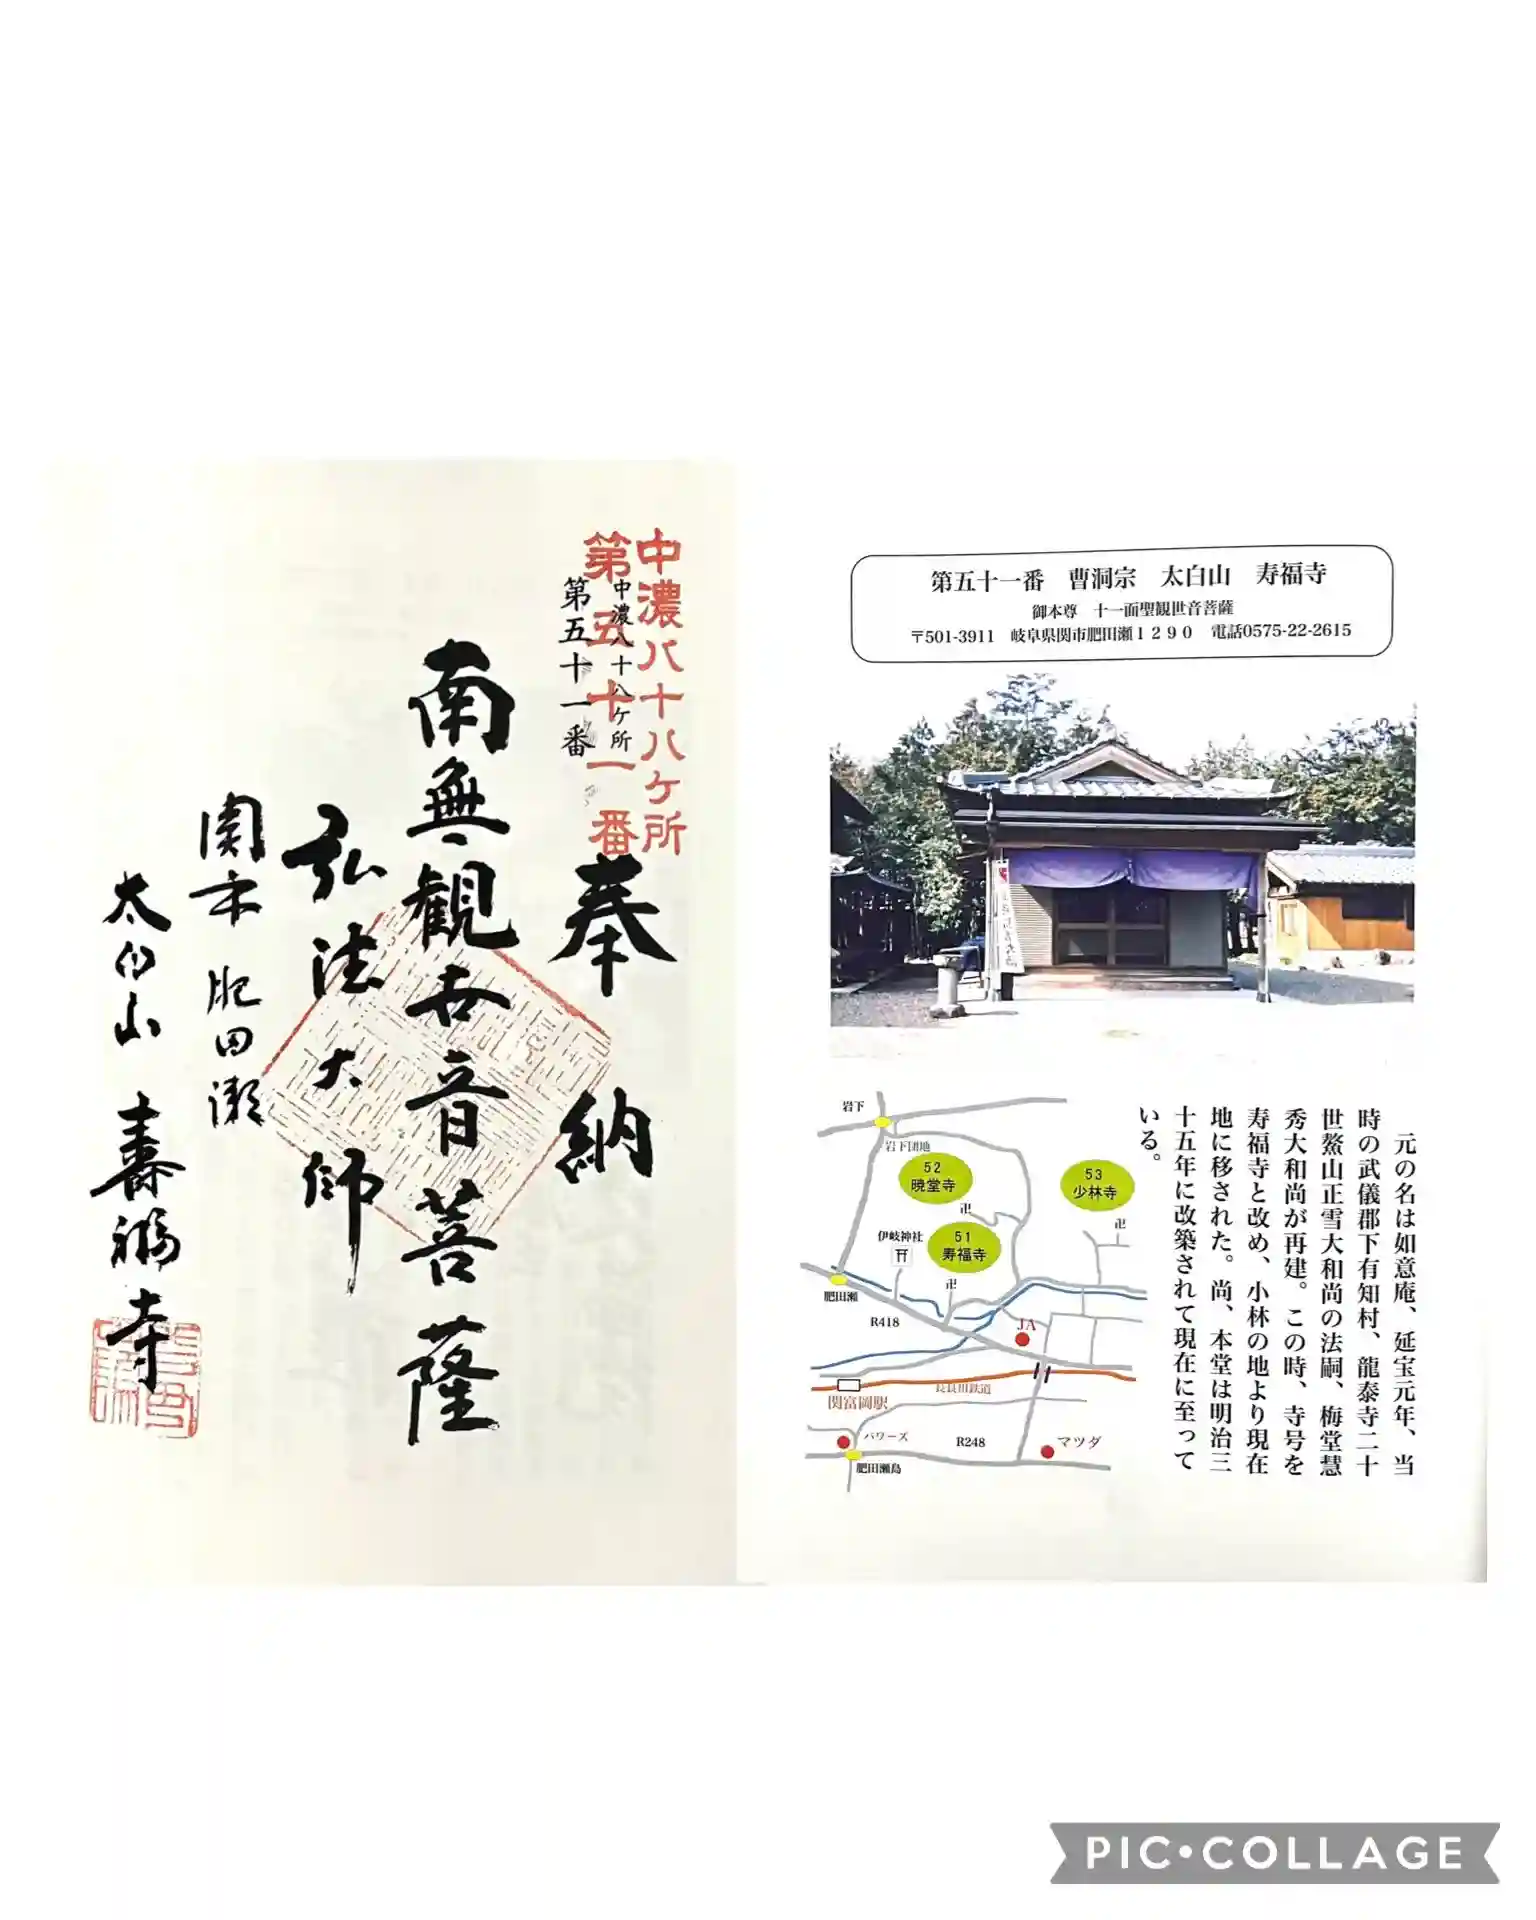 中濃八十八ケ所
第五十一番
中濃八十八ケ所
第五十一番
奉納
南無観世音菩薩
弘法大師
関市肥田瀬
太白山寿福寺
第五十一番 曹洞宗 太白山 寿福寺
御本尊 十一面聖観世音菩薩
〒501-3911 岐阜県関市肥田瀬1290 電話0575-22-2615
岩下
岩下団地
52
暁堂寺
卍
53
少林寺
卍
伊岐神社
51
寿福寺
卍
肥田瀬
R418
JA
長良川鉄道
関富岡駅
パワーズ
R248
マツダ
肥田瀬島
元の名は如意庵、延宝元年、当
時の武儀郡下有知村、龍泰寺二十
世鰲山正雪大和尚の法嗣、梅堂慧
秀大和尚が再建。この時、寺号を
寿福寺と改め、小林の地より現在
地に移された。尚、本堂は明治三
十五年に改築されて現在に至って
いる。
PIC•COLLAGE